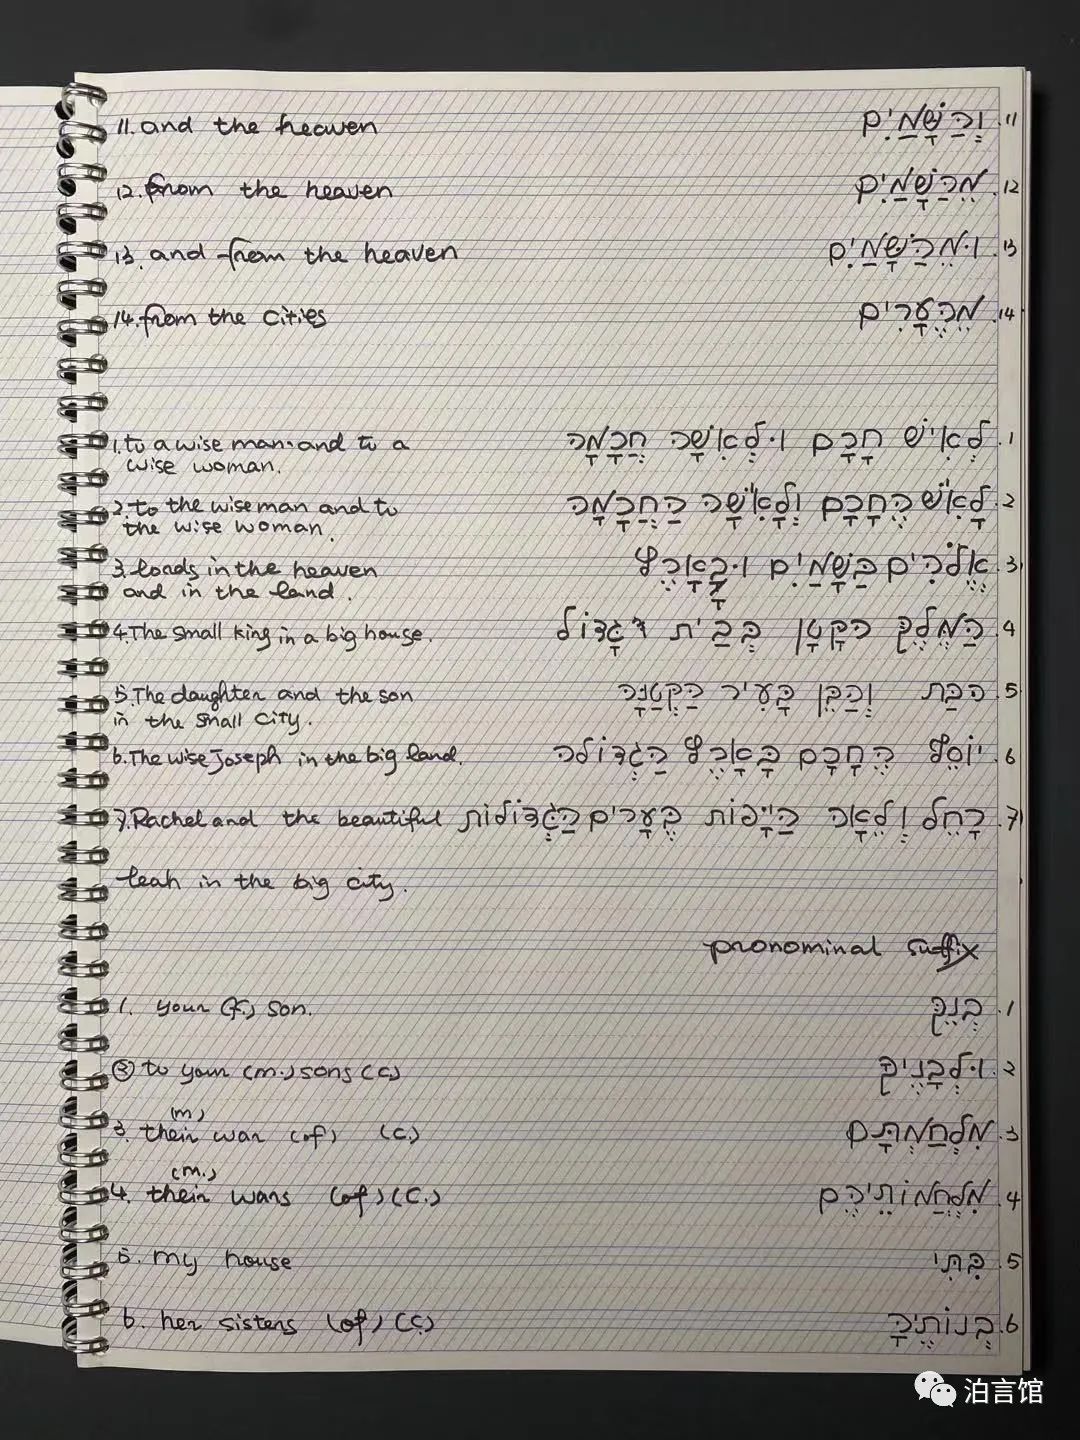 11. and the heaven וְהַשָּׁמַיִם .11
12. from the heaven מֵהַשָּׁמַיִם .12
13. and from the heaven וּמֵהַשָּׁמַיִם .13
14. from the cities מֵהֶעָרִים .14
1. to a wise man and to a לְאִישׁ חָכָם וּלְאִשָּׁה חֲכָמָה .1
wise woman.
2. to the wise man and to לָאִישׁ הֶחָכָם וְלָאִשָּׁה הַחֲכָמָה .2
the wise woman.
3. Lords in the heaven אֱלֹהִים בַּשָּׁמַיִם וּבָאָרֶץ .3
and in the land.
4. The small king in a big house. הַמֶּלֶךְ הַקָּטָן בְּבַיִת גָּדוֹל .4
5. The daughter and the son הַבַּת וְהַבֵּן בָּעִיר הַקְּטַנָּה .5
in the small city.
6. The wise Joseph in the big land. יוֹסֵף הֶחָכָם בָּאָרֶץ הַגְּדוֹלָה .6
7. Rachel and the beautiful רָחֵל וְלֵאָה הַיָּפוֹת בֶּעָרִים הַגְּדוֹלוֹת .7
leah in the big city.
pronominal suffix
1. your (f.) son. בְּנֵךְ .1
② to your (m.) sons (c) וּלְבָנֶיךָ .2
(m)
3. their war (of) (c.) מִלְחַמְתָּם .3
(m.)
4. their wars (of) (c.) מִלְחֲמוֹתֵיהֶם .4
5. my house בִּתִּי .5
6. her sisters (of) (c) בְּנוֹתֶיהָ .6
泊言馆